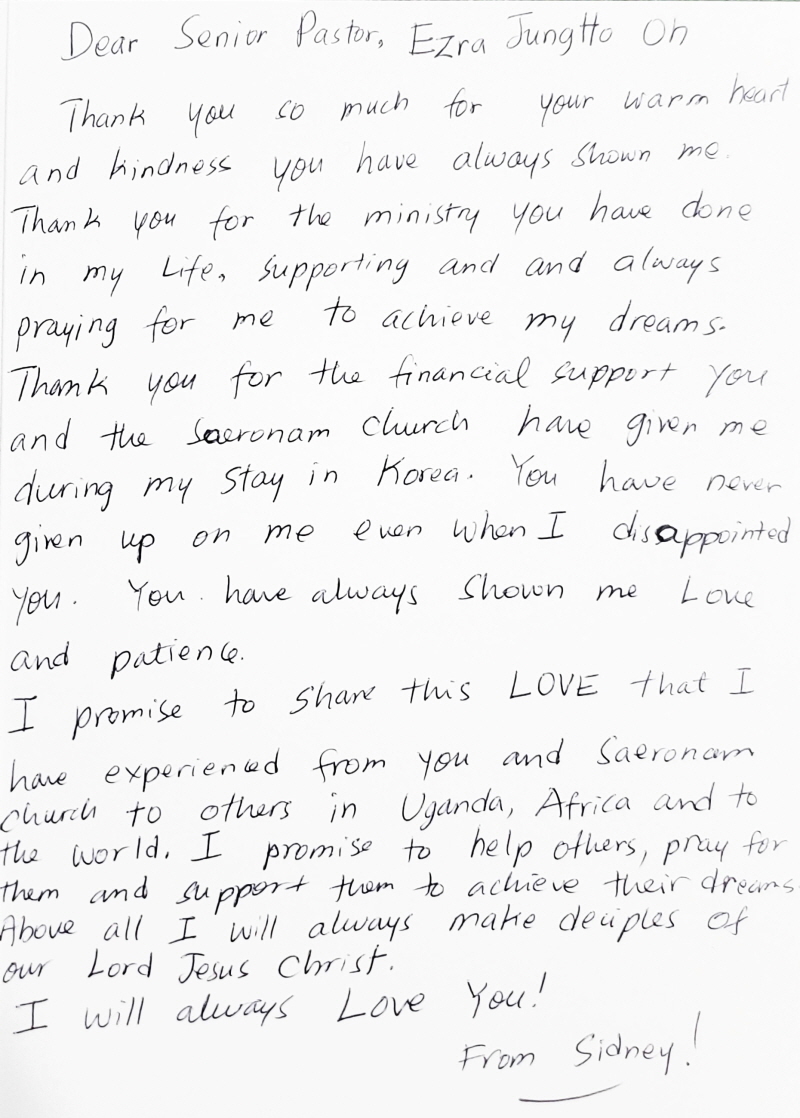 Dear Senior Pastor, Ezra Jungtto Oh
Thank you so much for your warm heart
and kindness you have always shown me.
Thank you for the ministry you have done
in my Life, supporting and and always
praying for me to achieve my dreams.
Thank you for the financial support you
and the Saeronam church have given me
during my stay in Korea. You have never
given up on me even when I disappointed
you. You have always shown me Love
and patience.
I promise to share this LOVE that I
have experienced from you and Saeronam
church to others in Uganda, Africa and to
the world. I promise to help others, pray for
them and support them to achieve their dreams
Above all I will always make deciples of
our Lord Jesus Christ.
I will always Love You!
From Sidney!